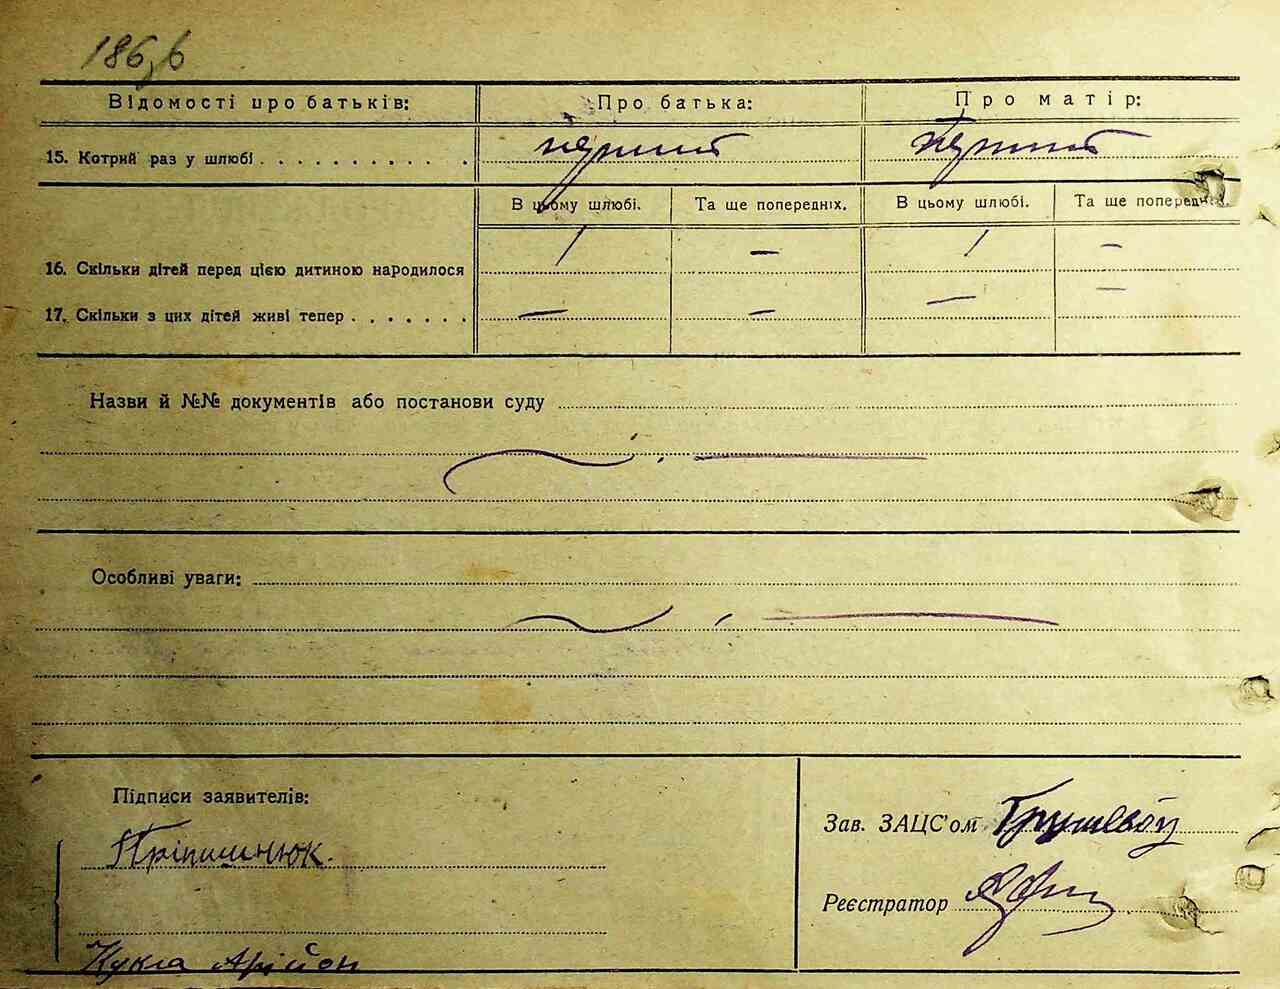 186
Відомості про батьків: Про батька: Про матір:
15. Котрий раз у шлюбі . . . . . . . . . . . . перший перший
В цьому шлюбі. Та ще попередніх. В цьому шлюбі. Та ще попередніх.
16. Скільки дітей перед цією дитиною народилося / — / —
17. Скільки з цих дітей живі тепер . . . . . . . — — — —
Назви й №№ документів або постанови суду
Особливі уваги:
Підписи заявителів:
Зав. ЗАЦС'ом
Реєстратор
Кукла